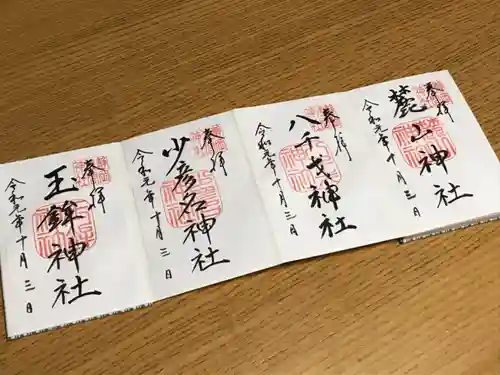 奉拝
麓山神社
令和元年十月三日
奉拝
八千戈神社
令和元年十月三日
奉拝
少彦名神社
令和元年十月三日
奉拝
玉鉾神社
令和元年十月三日